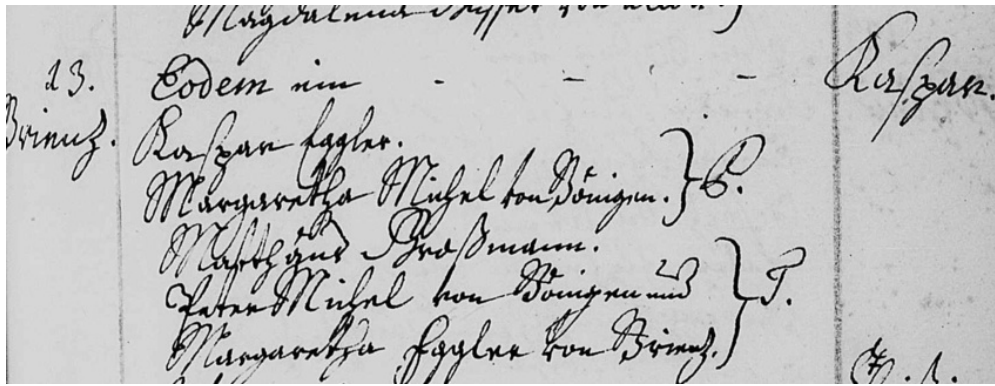 Magdalena
23. Eodem ein - - - Kaspar.
Brienz. Kaspar Eggler.
Margaretha Michel von Bönigen. } E.
Matthäus Großmann.
Peter Michel von Bönigen und } T.
Margaretha Eggler von Brienz.